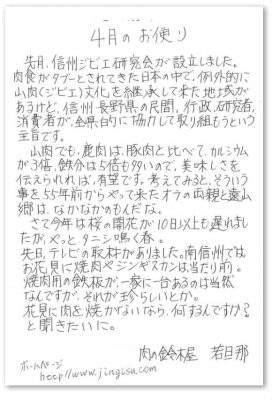 4月のお便り
先月、信州ジビエ研究会が設立しました。
肉食がタブーとされてきた日本の中で、例外的に
山肉(ジビエ)文化を継承して来た地域が
あるけど、信州長野県の民間、行政、研究者、
消費者が、全県的に協力して取り組もうという
主旨です。
山肉でも、鹿肉は、豚肉と比べて、カルシウム
が3倍、鉄分は5倍も多いので、美味しさを
伝えられれば、有望です。考えてみると、そういう
事を55年前からやって来たオラの両親と遠山
郷は、なかなかのもんだな。
さて今年は桜の開花が10日以上も遅れまし
たが、やっとタニシ鳴く春。
先日、テレビの取材がありました。南信州では
お花見に焼肉やジンギスカンは当たり前。
焼肉用の鉄板が、一家に一台あるのは当然
なんですが、それが珍らしいとか。
花見に肉を焼かないなら、何するんですか?
と聞きたいに。
肉の鈴木屋 若旦那
ホームページ
http://www.jingisu.com/